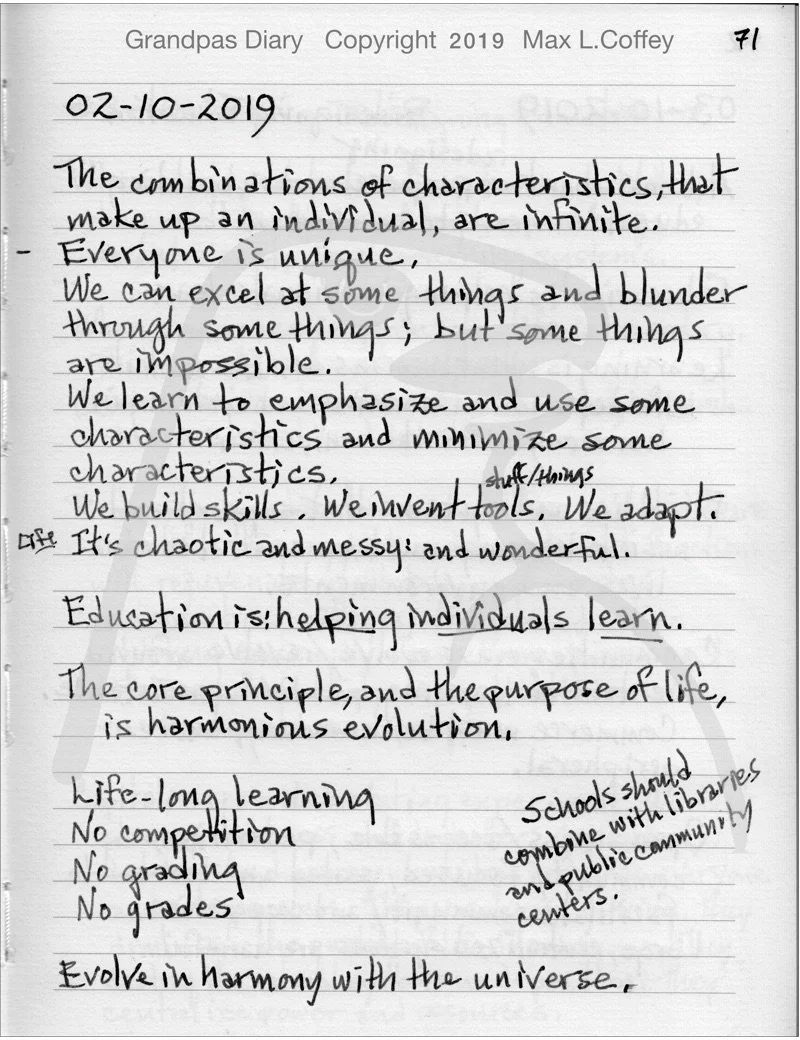 Grandpas Diary Copyright 2019 Max L.Coffey
71
02-10-2019
The combinations of characteristics, that
make up an individual, are infinite.
- Everyone is unique,
We can excel at some things and blunder
through some things; but some things
are impossible.
We learn to emphasize and use some
characteristics and minimize some
characteristics.
stuff/things
We build skills. We invent tools. We adapt.
Life It's chaotic and messy: and wonderful.
Education is: helping individuals learn.
The core principle, and the purpose of life,
is harmonious evolution.
Life-long learning
No competition
No grading
No grades
Schools should
combine with libraries
and public community
centers.
Evolve in harmony with the universe.